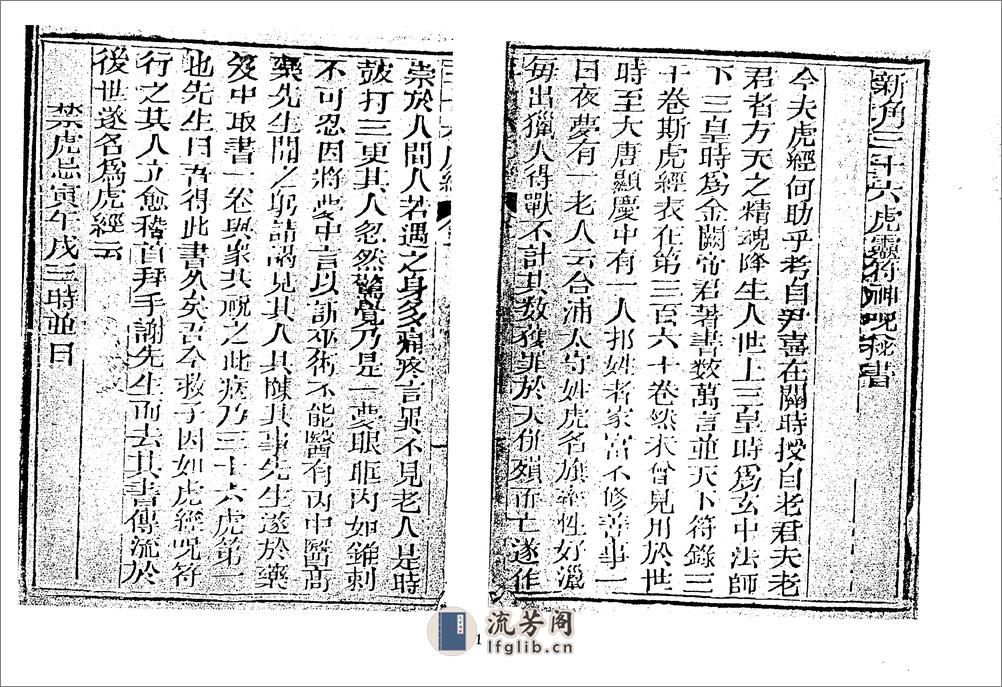 新角三十六虎靈符神呪秘書
今夫虎經何助乎考自尹喜在關時授自老君夫老
君者方天之精魂降生人世上三皇時爲玄中法師
下三皇時爲金闕帝君著書数萬言並天下符錄三
十卷斯虎經表在第三百六十卷然未曾見用於世
時至大唐顯慶中有一人邦姓者家富不修善事一
日夜夢有一老人云合浦太守姓虎名旗率性好獵
每出獵人得獸不計其数獲罪於天併殞而亡遂作
祟於人間人若遇之身多痛疼言畢不見老人是時
鼓打三更其人忽然驚覺乃是一夢眼眶内如錐刺
不可忍因將夢中言以訪巫術不能醫有内中醫高
藥先生聞之躬請謁見其人具陳其事先生遂於藥
笈中取書一卷與衆共視之此病乃三十六虎第一
也先生曰吾得此書久矣吾今救子因如虎經呪符
行之其人立愈稽首拜手謝先生而去其書傳流於
後世遂名爲虎經云
禁虎忌寅午戌三時並日
1
流芳阁
lfglib.cn